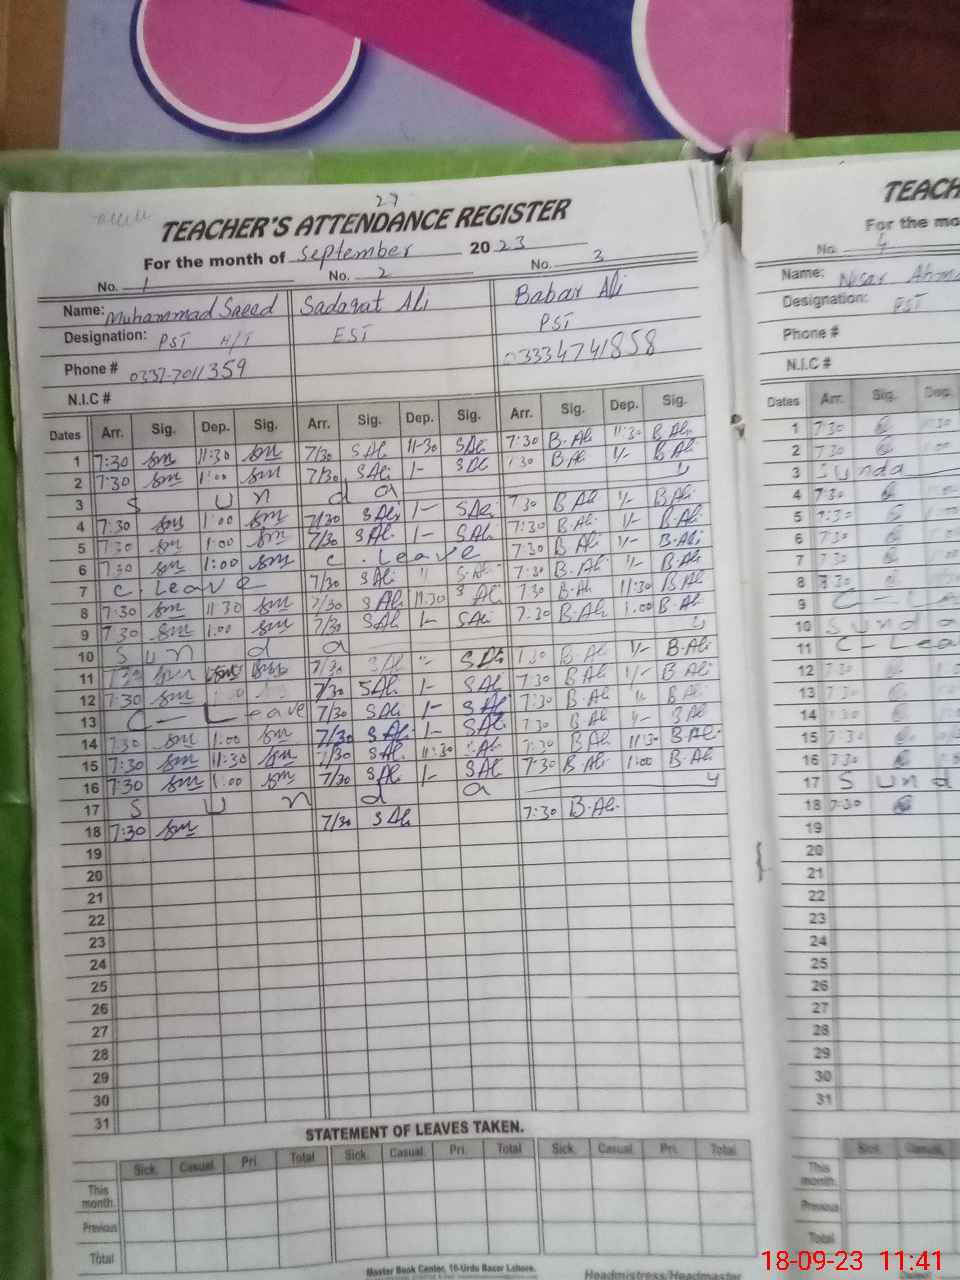 27
TEACHER'S ATTENDANCE REGISTER
For the month of September 2023
No. 1 No. 2 No. 3
Name: Muhammad Saeed Sadaqat Ali Babar Ali
Designation: PST H/T EST PST
Phone # 0337-7011359 03334741858
N.I.C #
Dates Arr. Sig. Dep. Sig. Arr. Sig. Dep. Sig. Arr. Sig. Dep. Sig.
1 7:30 sm 11:30 sm 7/30 SAli 11-30 SAli 7:30 B.Ali 11:30 B.Ali
2 7:30 sm 1:00 sm 7/30 SAli 1- SAli 7:30 B Ali 1/- B Ali
3 S u n d a y
4 7:30 sm 1:00 sm 7/30 SAli 1- SAli 7:30 B Ali 1/- B Ali
5 7:30 sm 1:00 sm 7/30 SAli 1- SAli 7:30 B.Ali 1/- B.Ali
6 7:30 sm 1:00 sm c. Leave 7:30 B Ali 1/- B.Ali
7 c. Leave 7/30 SAli 11 S.Ali 7:30 B.Ali 1/- B.Ali
8 7:30 sm 11 30 sm 7/30 SAli 11:30 SAli 7:30 B Ali 11:30 B Ali
9 7:30 sm 1:00 sm 7/30 SAli 1- SAli 7:30 B.Ali 1:00 B.Ali
10 S u n d a y
11 7:30 sm sm 7/30 SAli SAli 7:30 B.Ali 1/- B.Ali
12 7:30 sm 7/30 SAli 1- SAli 7:30 B Ali 1/- B Ali
13 C - Leave 7/30 SAli 1- SAli 7:30 B.Ali 1/- B Ali
14 7:30 sm 1:00 sm 7/30 SAli 1- SAli 7:30 B Ali 1/- B Ali
15 7:30 sm 11:30 sm 7/30 SAli 11:30 SAli 7:30 B Ali 11:30 B Ali
16 7:30 sm 1:00 sm 7/30 SAli 1- SAli 7:30 B.Ali 1:00 B.Ali
17 S u n d a y
18 7:30 sm 7/30 SAli 7:30 B.Ali
19
20
21
22
23
24
25
26
27
28
29
30
31
STATEMENT OF LEAVES TAKEN.
Sick. Casual. Pri. Total Sick. Casual. Pri. Total Sick. Casual. Pri. Total
This month.
Previous
Total
Master Book Center, 10-Urdu Bazar Lahore.
TEACH
For the mo
No. 4
Name: Nisar Ahma
Designation: PST
Phone #
N.I.C #
Dates Arr. Sig. Dep.
1 7:30 11:30
2 7:30 1:00
3 Sunda
4 7:30
5 7:30
6 7:30
7 7:30
8 7:30
9 C - Le
10 Sunda
11 C - Lea
12 7:30
13 7:30
14 7:30
15 7:30
16 7:30
17 S u n d a
18 7:30
19
20
21
22
23
24
25
26
27
28
29
30
31
Sick. Casual.
This month.
Previous
Total
Headmistress/Headmaster
18-09-23 11:41